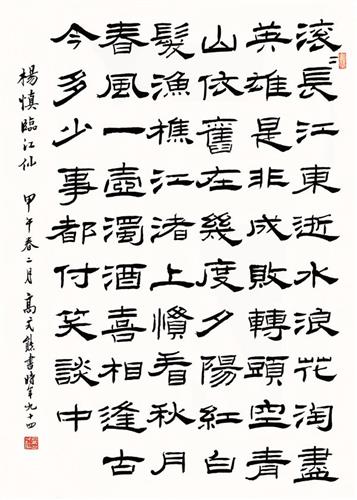 滾〻長江東逝水浪花淘盡
英雄是非成敗轉頭空青
山依舊在幾度夕陽紅白
髮漁樵江渚上慣看秋月
春風一壺濁酒喜相逢古
今多少事都付笑談中
楊慎臨江仙 甲午春二月 高式熊書時年九十四